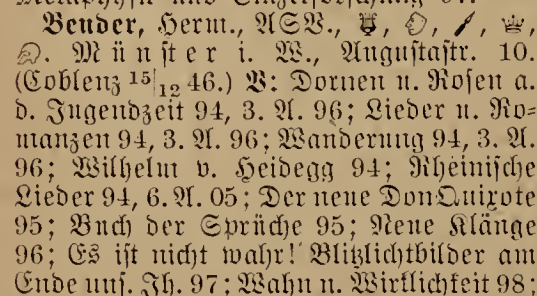 Bender, Herm., ASV., , , , ,
. Münster i. W., Augustastr. 10.
(Coblenz 15/12 46.) V: Dornen u. Rosen a.
d. Jugendzeit 94, 3. A. 96; Lieder u. Ro=
manzen 94, 3. A. 96; Wanderung 94, 3. A.
96; Wilhelm v. Heidegg 94; Rheinische
Lieder 94, 6. A. 05; Der neue DonQuixote
95; Buch der Sprüche 95; Neue Klänge
96; Es ist nicht wahr! Blitzlichtbilder am
Ende uns. Jh. 97; Wahn u. Wirklichkeit 98;